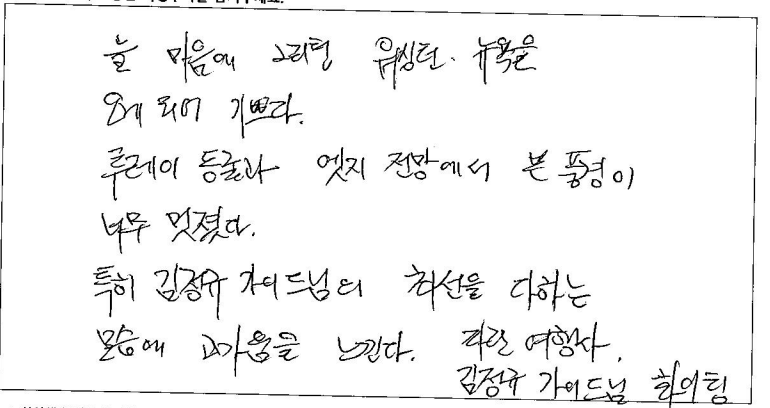 늘 마음에 그리던 워싱턴. 뉴욕을
오게 되어 기쁘다.
루레이 동굴과 엣지 전망에서 본 풍경이
너무 멋졌다.
특히 김정규 가이드님의 최선을 다하는
모습에 고가움을 느낀다. 파란 여행사,
김정규 가이드님 화이팅